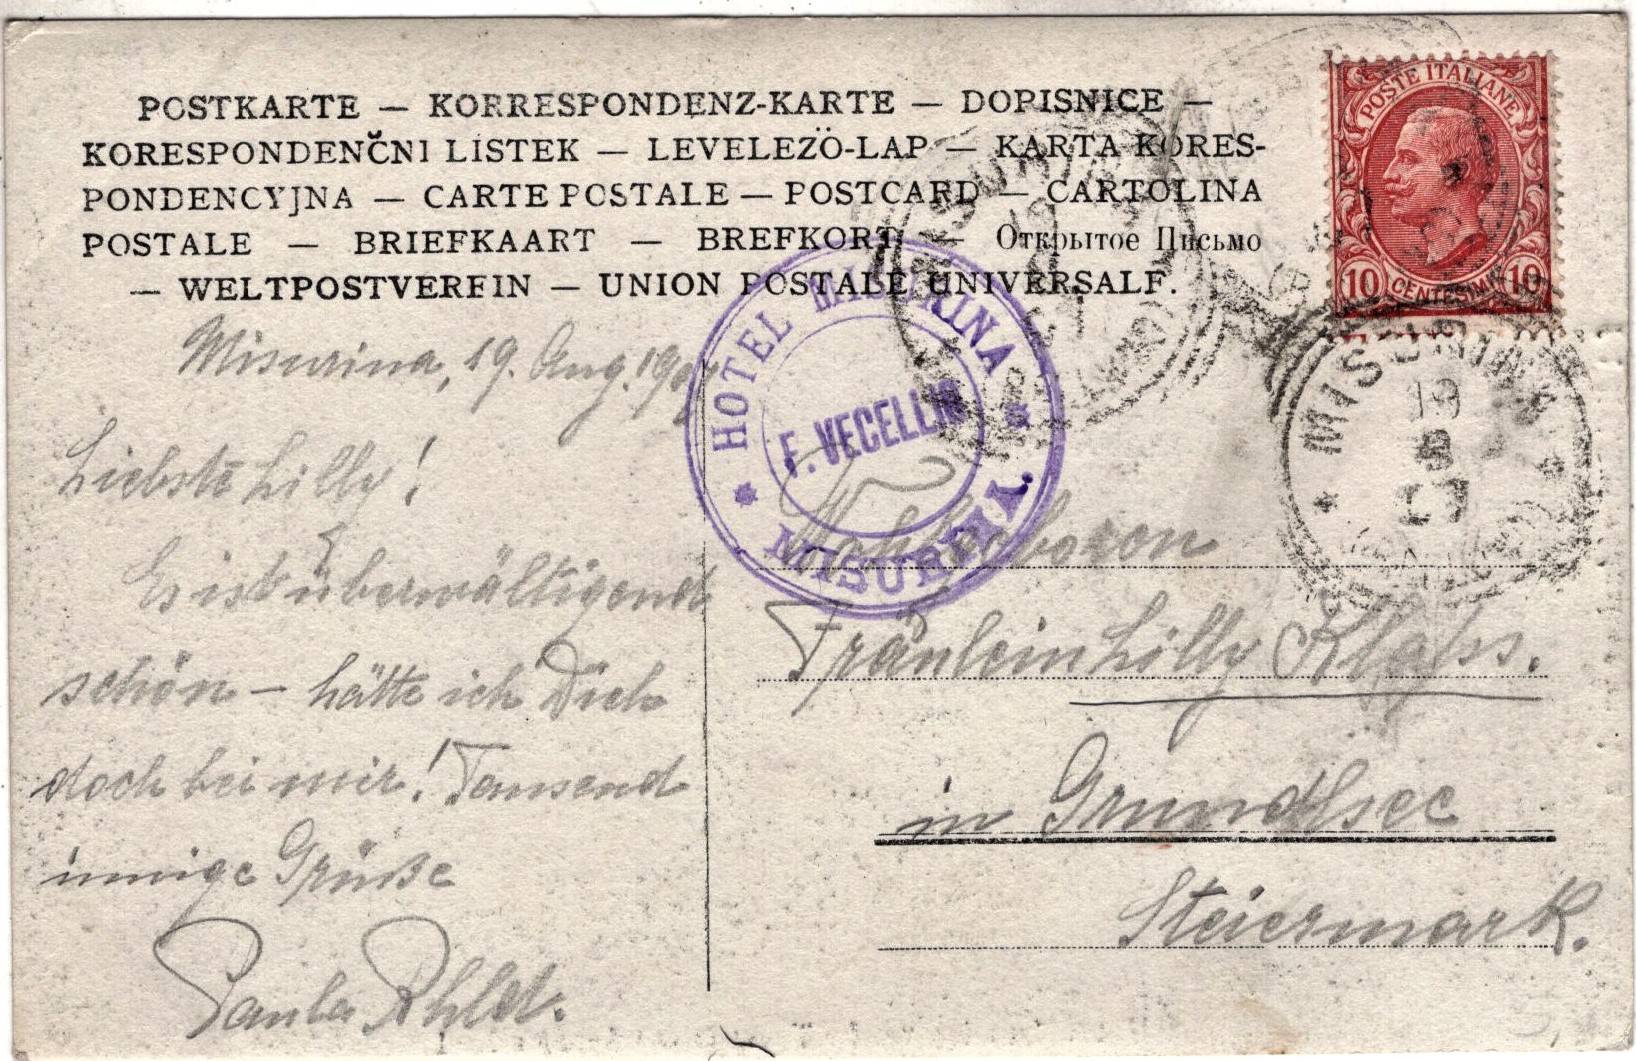 POSTKARTE — KORRESPONDENZ-KARTE — DOPISNICE —
KORESPONDENČNI LISTEK — LEVELEZÖ-LAP — KARTA KORES-
PONDENCYJNA — CARTE POSTALE — POSTCARD — CARTOLINA
POSTALE — BRIEFKAART — BREFKORT — Открытое Письмо
— WELTPOSTVEREIN — UNION POSTALE UNIVERSALE.
POSTE ITALIANE
10 CENTESIMI 10
MISURINA
19
8
07
HOTEL MISURINA
F. VECELLIO
MISURINA.
Misurina, 19. Aug. 190
Liebste Lilly!
Es ist überwältigend
schön – hätte ich Dich
doch bei mir! Tausend
innige Grüße
Paula
Wohlgeboren
Fräulein Lilly
in Grundlsee
Steiermark.